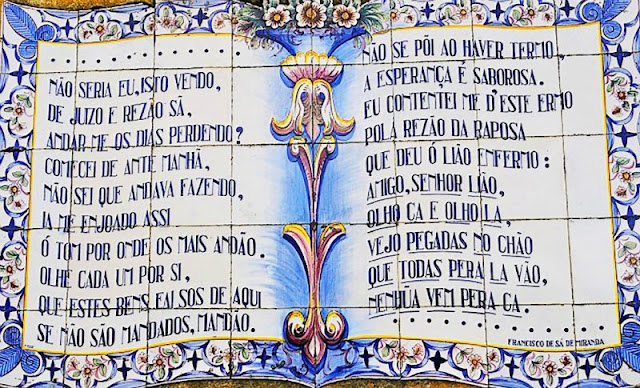 NÃO SERIA EU, ISTO VENDO,
DE JUIZO E REZÃO SÃ,
ANDAR ME OS DIAS PERDENDO?
COMECEI DE ANTE MANHÃ,
NÃO SEI QUE ANDAVA FAZENDO,
IA ME ENJOADO ASSI
Ó TOM POR ONDE OS MAIS ANDÃO.
OLHE CADA UM POR SI,
QUE ESTES BENS FALSOS DE AQUI
SE NÃO SÃO MANDADOS, MANDÃO.
NÃO SE PÕI AO HAVER TERMO,
A ESPERANÇA E SABOROSA.
EU CONTENTEI ME D'ESTE ERMO
POLA REZÃO DA RAPOSA
QUE DEU Ó LIÃO ENFERMO:
AMIGO, SENHOR LIÃO,
OLHO CA E OLHO LA,
VEJO PEGADAS NO CHÃO
QUE TODAS PERA LA VÃO,
NENHŨA VEM PERA CA.
FRANCISCO DE SÁ DE MIRANDA